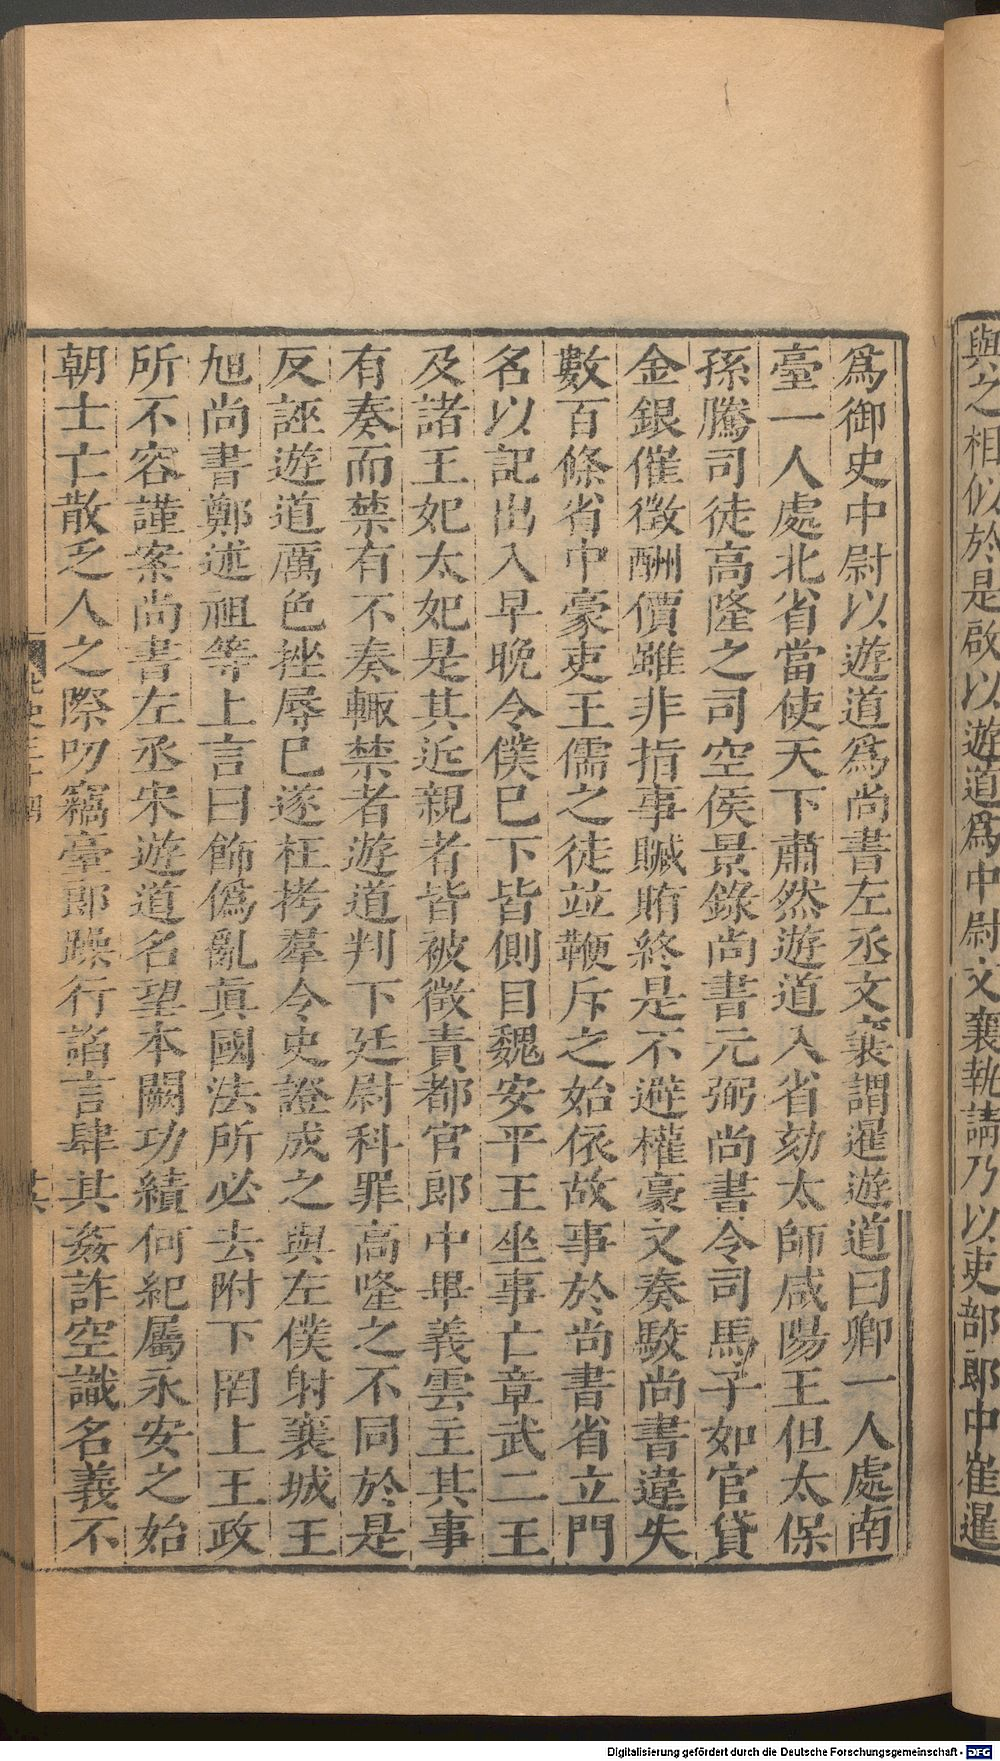 與之相似於是啟以遊道爲中尉文襄執請乃以吏部郎中崔暹
爲御史中尉以遊道爲尚書左丞文襄謂暹遊道曰卿一人處南
臺一人處北省當使天下肅然遊道入省劾太師咸陽王但太保
孫騰司徒高隆之司空侯景錄尚書元弼尚書令司馬子如官貸
金銀催徵酬價雖非指事贓賄終是不避權豪文奏駮尚書違失
數百條省中豪吏王儒之徒竝鞭斥之始依故事於尚書省立門
名以記出入早晚令僕巳下皆側目魏安平王坐事亡章武二王
及諸王妃太妃是其近親者皆被徵責都官郎中畢義雲主其事
有奏而禁有不奏輙禁者遊道判下廷尉科罪高隆之不同於是
反誣遊道厲色挫辱已遂枉拷羣令史證成之與左僕射襄城王
旭尚書鄭述祖等上言曰飾僞亂眞國法所必去附下罔上王政
所不容謹案尚書左丞宋遊道名望本闕功績何紀屬永安之始
朝士亡散乏人之際叨竊臺郎躁行諂言肆其姦詐空識名義不
Digitalisierung gefördert durch die Deutsche Forschungsgemeinschaft - DFG